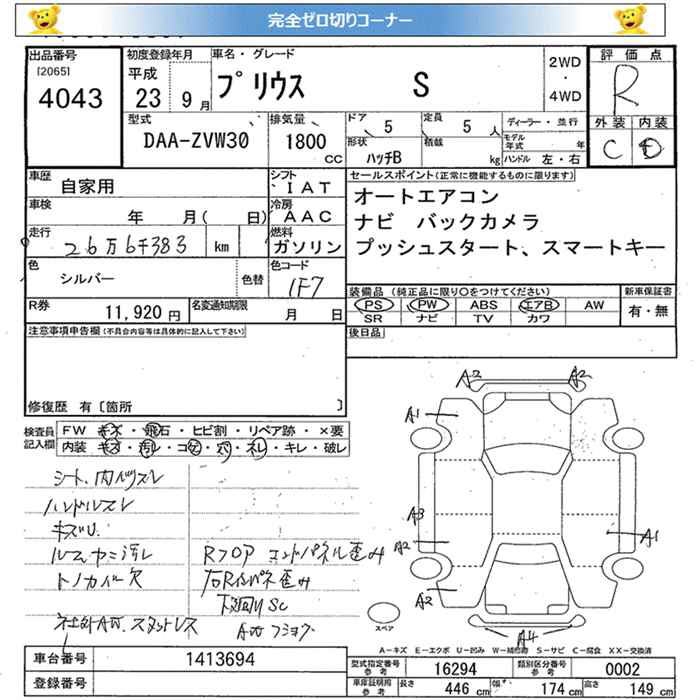 完全ゼロ切りコーナー
出品番号
[2065]
4043
初度登録年月
平成
23 9月
車名・グレード
プリウス S
2WD
・
4WD
評価点
R
外装 内装
C D
型式
DAA-ZVW30
排気量
1800
cc
ドア
5
定員
5 人
形状
ハッチB
積載
kg
ディーラー・並行
モデル
年式 年
ハンドル 左・右
車歴
自家用
シフト
IAT
車検
年 月( 日)
冷房
AAC
走行
26万6千383 km
燃料
ガソリン
色
シルバー
色替
色コード
1F7
R券
11,920 円
名変通知期限
月 日
セールスポイント(正常に機能するものに限ります)
オートエアコン
ナビ バックカメラ
プッシュスタート、スマートキー
装備品 (純正品に限り○をつけてください)
PS PW ABS エアB AW
SR ナビ TV カワ
新車保証書
有・無
後日品
注意事項申告欄(不具合内容等は具体的に記入して下さい)
修復歴 有〔箇所 〕
検査員
記入欄
FW キズ・飛石・ヒビ割・リペア跡・×要
内装 キズ・汚レ・コゲ・穴・ネレ・キレ・破レ
シート、内
ハンドルスレ
キズU
トノカバー欠
社外AW、スタットレス
Rフロア エンドパネル歪み
右Rインパネ歪み
下廻りSC
AW
A2 A2
A1
A3
A2
A1
A2
A4
スペア
A-キズ E-エクボ U-凹み W-補修跡 S-サビ C-腐食 XX-交換済
車台番号
1413694
登録番号
型式指定番号
参考
16294
類別区分番号
参考
0002
車庫証明用
参考
長さ 446 cm
幅 174 cm
高さ 149 cm